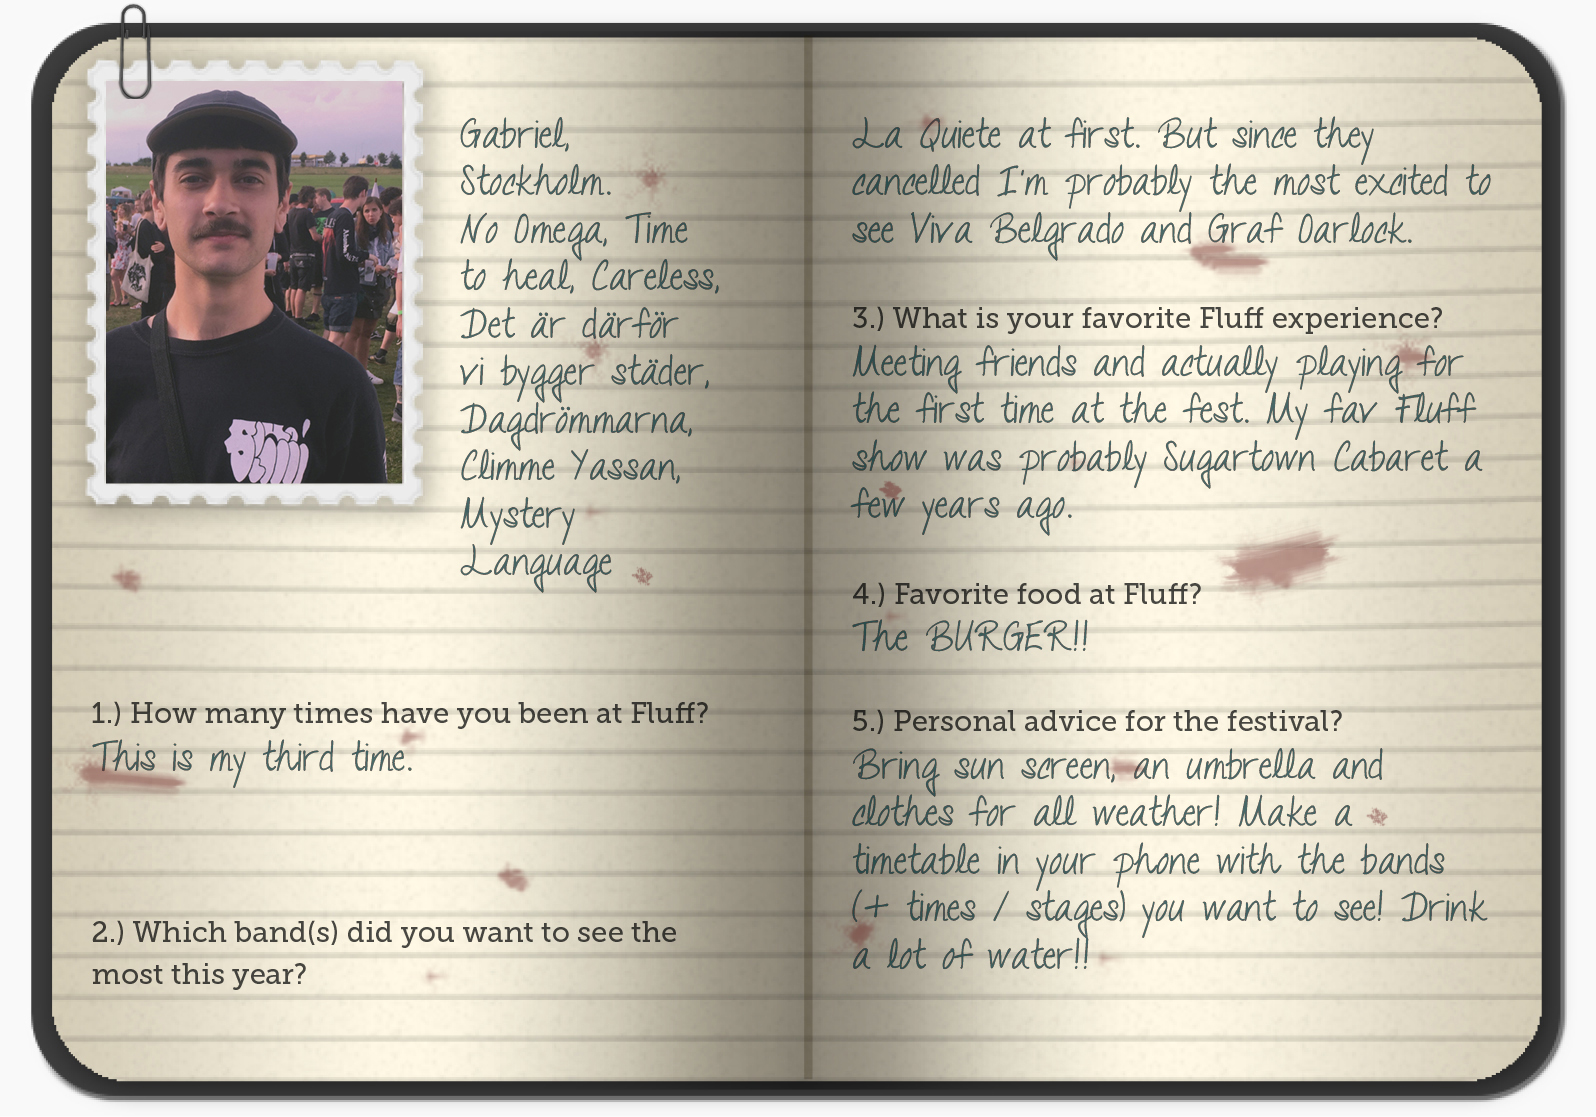 Gabriel,
Stockholm.
No Omega, Time
to heal, Careless,
Det är därför
vi bygger städer,
Dagdrömmarna,
Climme Yassan,
Mystery
Language
1.) How many times have you been at Fluff?
This is my third time.
2.) Which band(s) did you want to see the
most this year?
La Quiete at first. But since they
cancelled I'm probably the most excited to
see Viva Belgrado and Graf Oarlock.
3.) What is your favorite Fluff experience?
Meeting friends and actually playing for
the first time at the fest. My fav Fluff
show was probably Sugartown Cabaret a
few years ago.
4.) Favorite food at Fluff?
The BURGER!!
5.) Personal advice for the festival?
Bring sun screen, an umbrella and
clothes for all weather! Make a
timetable in your phone with the bands
(+ times / stages) you want to see! Drink
a lot of water!!